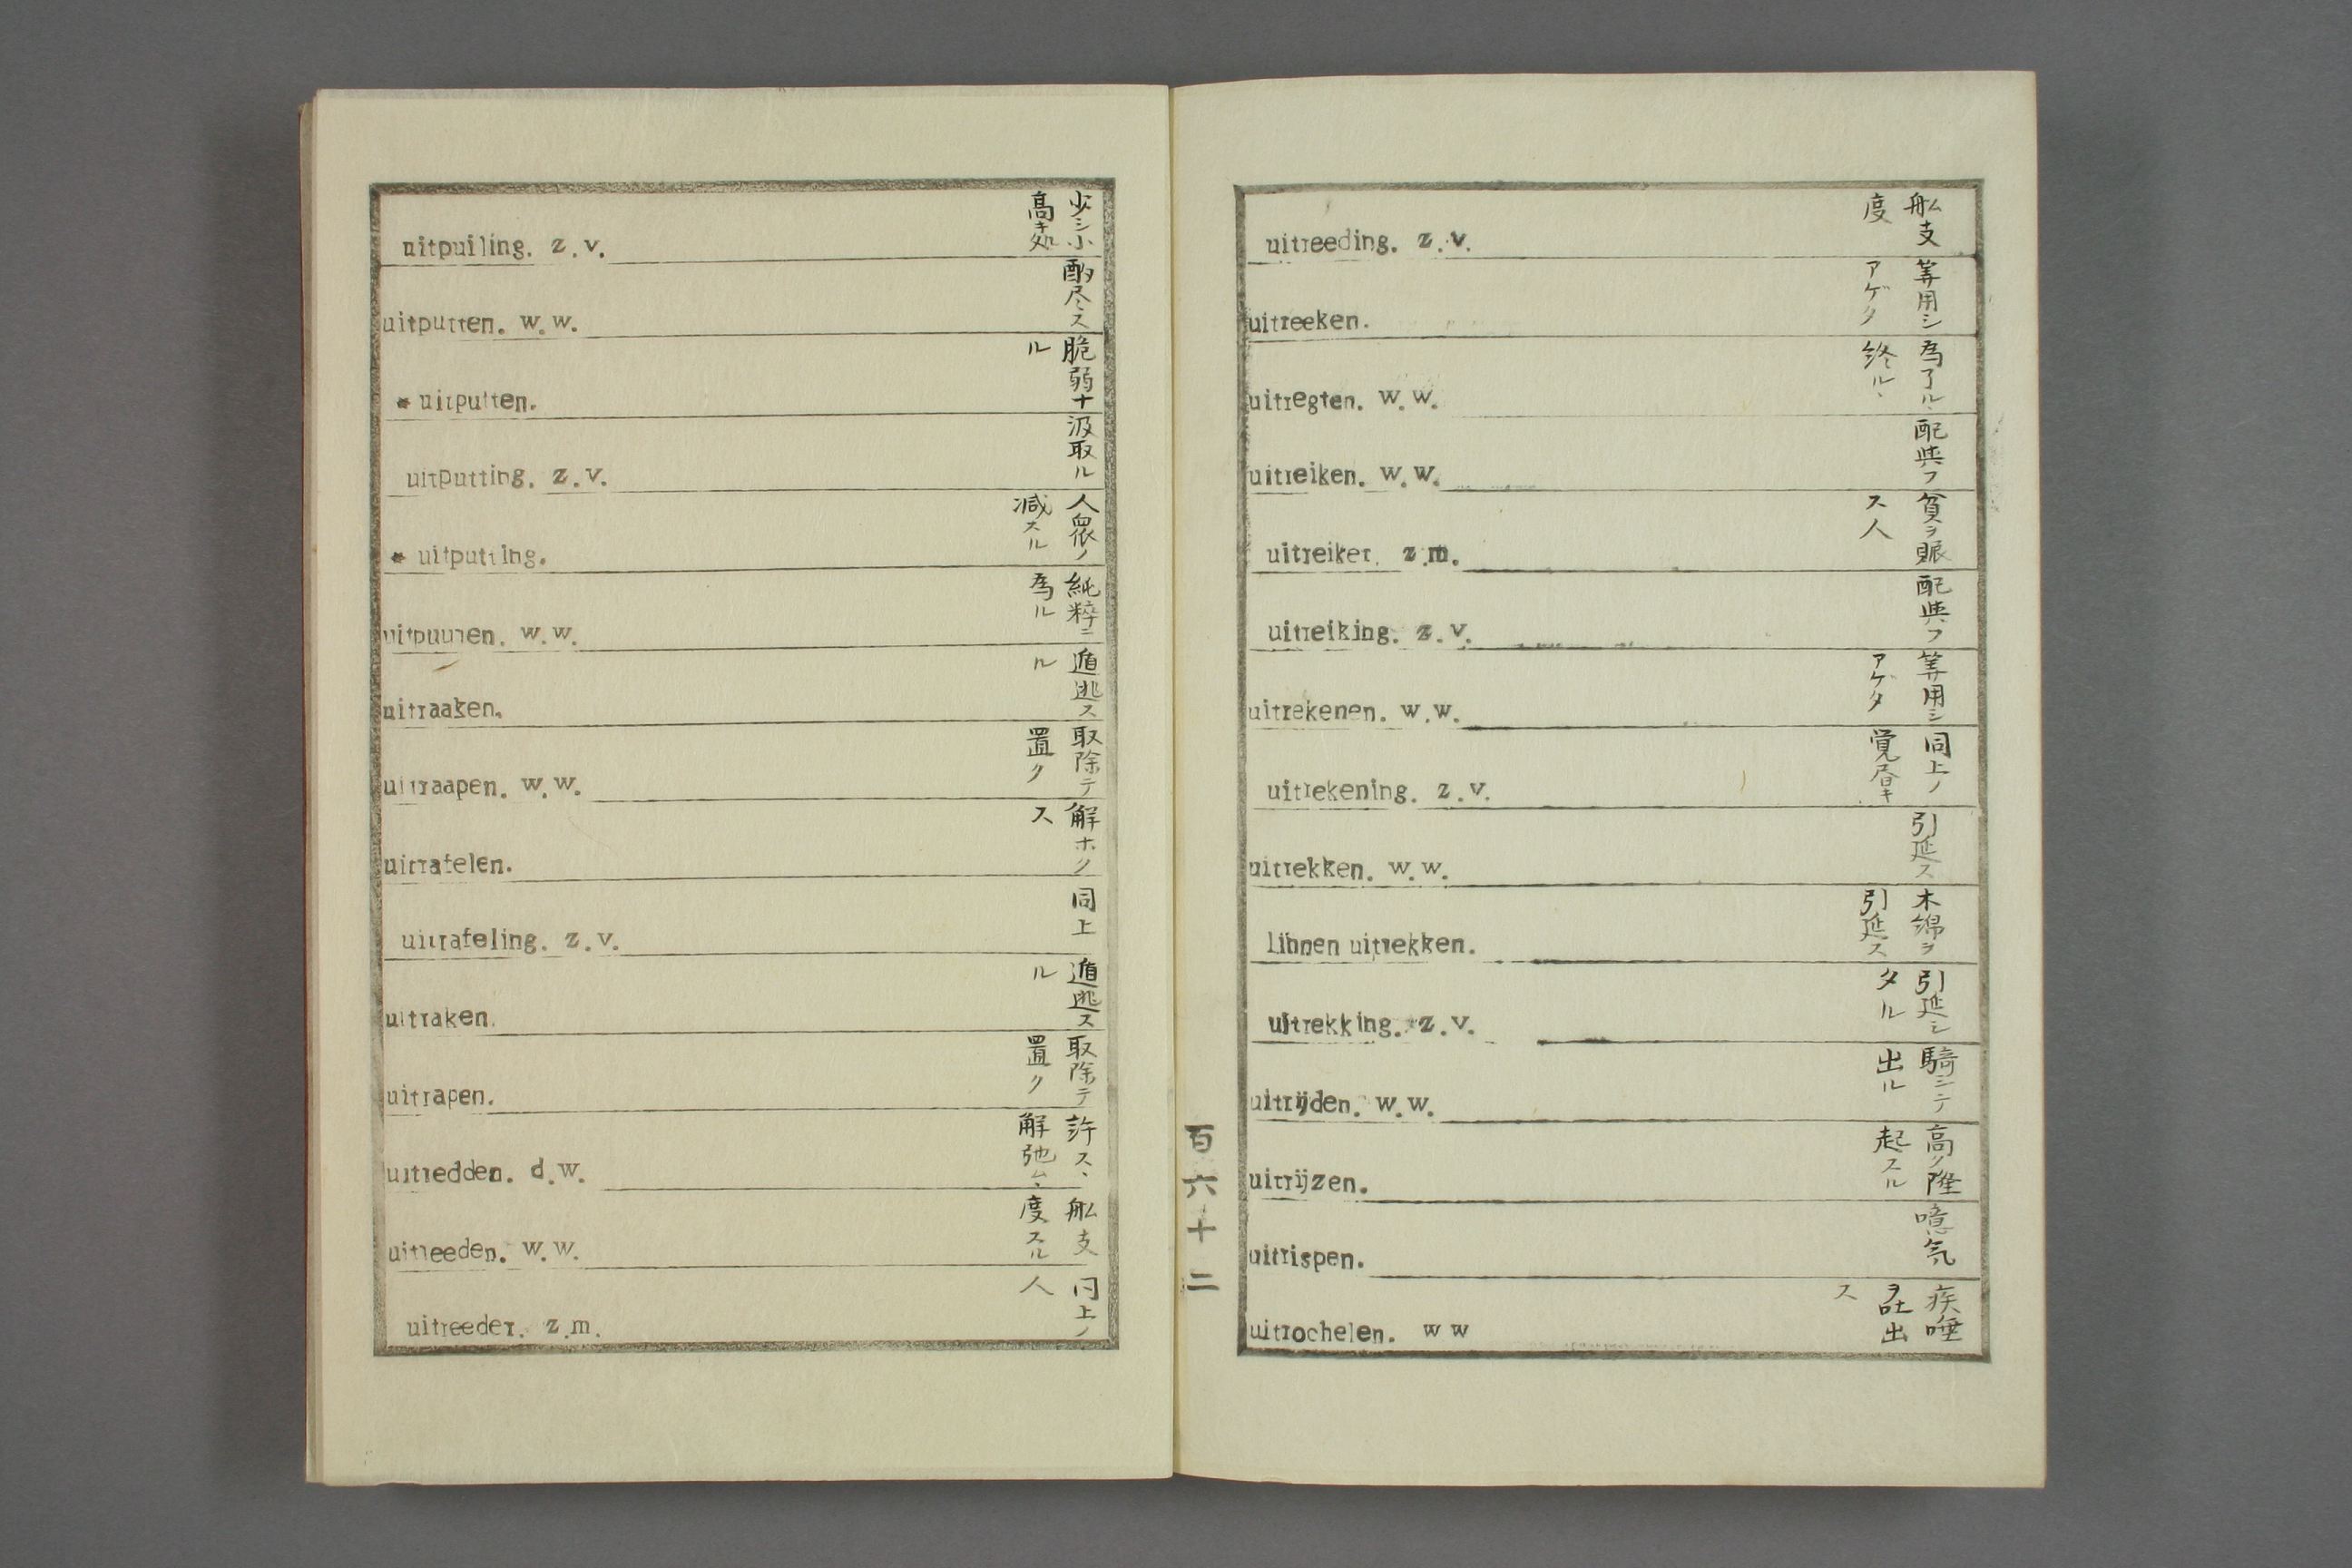 uitpuiling. z.v. 少シ小高キ処
uitputten. w.w. 酌尽ス
* uitputten. 脆弱ナル
uitputting. z.v. 汲取ル
* uitputting. 人衆ノ減スル
uitpuuren. w.w. 純粋ニ為ル
uitraaken. 遁逃スル
uitraapen. w.w. 取除テ置ク
uitrafelen. 解ホクス
uitrafeling. z.v. 同上
uitraken. 遁逃スル
uitrapen. 取除テ置ク
uitredden. d.w. 許ス、解弛ム、
uitreeden. w.w. 舩支度スル
uitreeder. z.m. 同上ノ人
百六十二
uitreeding. z.v. 舩支度
uitreeken. 算用シアゲタ
uitregten. w.w. 為了ル、終ル、
uitreiken. w.w. 配與フ
uitreiker. z.m. 貧ヲ賑ス人
uitreiking. z.v. 配與フ
uitrekenen. w.w. 算用シアゲタ
uitrekening. z.v. 同上ノ覚書キ
uitrekken. w.w. 引延ス
linnen uitrekken. 木綿ヲ引延ス
uitrekking. z.v. 引延シタル
uitrijden. w.w. 騎ニテ出ル
uitrijzen. 高ク隆起スル
uitrispen. 噫気
uitrochelen. w w 痰唾ヲ吐出ス